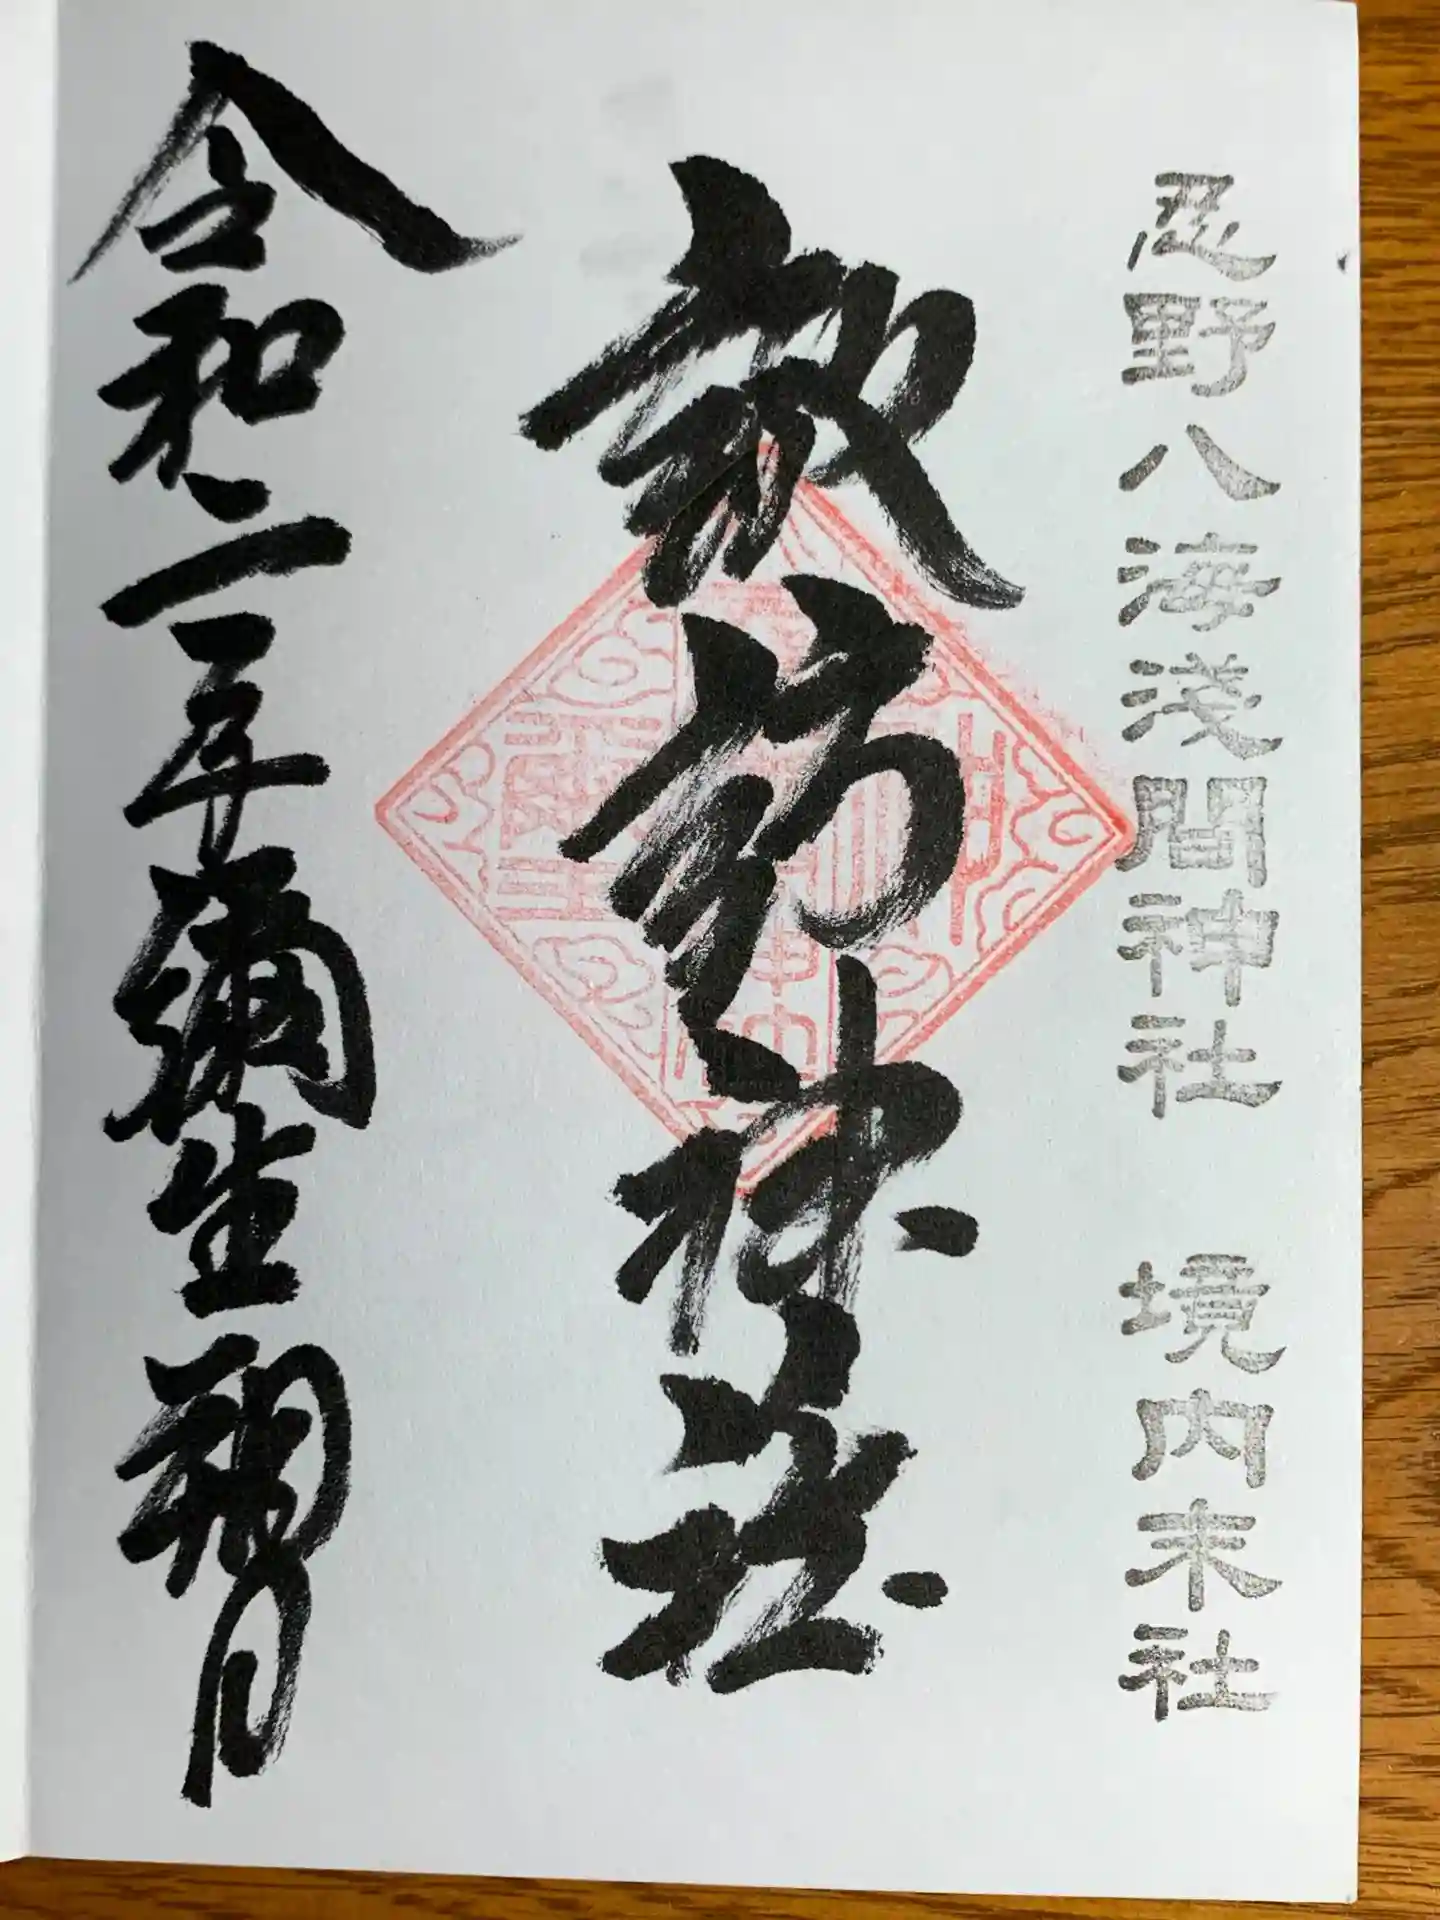 忍野八海淺間神社　境内末社
諏訪神社
令和二年彌生朔日